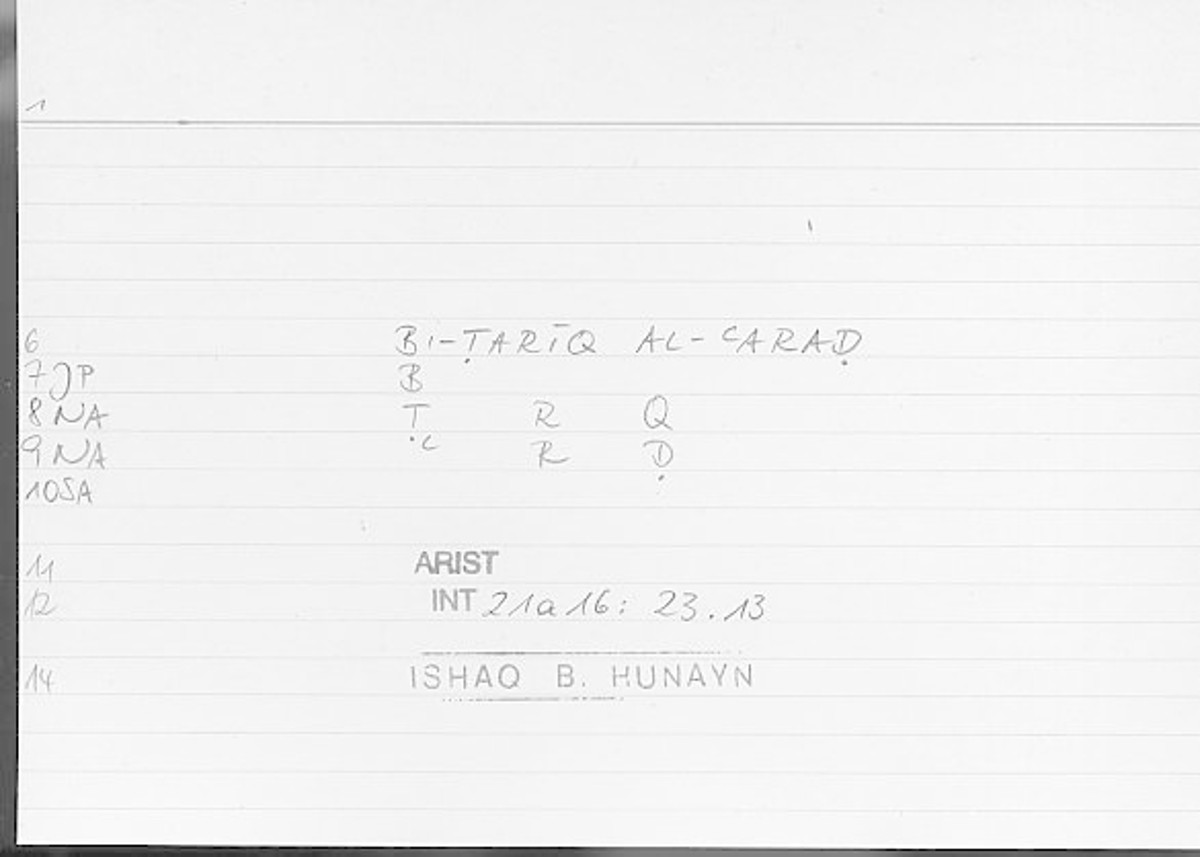 1
6 BI-ṬARĪQ AL-ʿARAḌ
7 JP B
8 NA Ṭ R Q
9 NA ʿ R Ḍ
10 SA
11 ARIST
12 INT 21a16: 23.13
14 ISHAQ B. HUNAYN